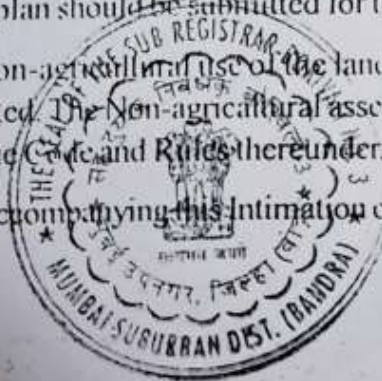 plan should be submitted for t
on-agricultural use of the land
ted. The Non-agricultural asse
e Code and Rules thereunder
ccompanying this Intimation o
THE SEAL OF THE SUB REGISTRAR
मुंबई उपनगर, जिल्हा (वां
सत्यमेव जयते
MUMBAI SUBURBAN DIST. (BANDRA)